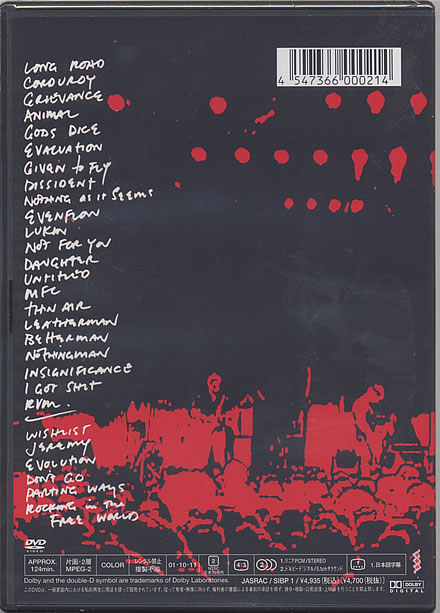 4 547366 000214
LONG ROAD
CORDUROY
GRIEVANCE
ANIMAL
GODS DICE
EVALUATION
GIVEN TO FLY
DISSIDENT
NOTHING AS IT SEEMS
EVENFLOW
LUKIN
NOT FOR YOU
DAUGHTER
UNTITLED
MFC
THIN AIR
LEATHERMAN
BETTERMAN
NOTHINGMAN
INSIGNIFICANCE
I GOT SHIT
RVM.
WISHLIST
JEREMY
EVOLUTION
DON'T GO
DARLING WAYS
ROCKING IN THE
FREE WORLD
DVD
VIDEO
APPROX. 124min.
片面・2層 MPEG-2
COLOR
レンタル禁止 複製不能
01-10-11
2
4:3
1.リニアPCM/STEREO
2.ドルビーデジタル/5.1chサラウンド
1.日本語字幕
DOLBY
DIGITAL
Dolby and the double-D symbol are trademarks of Dolby Laboratories.
JASRAC / SIBP 1 / ¥4,935(税込)(¥4,700(税抜))